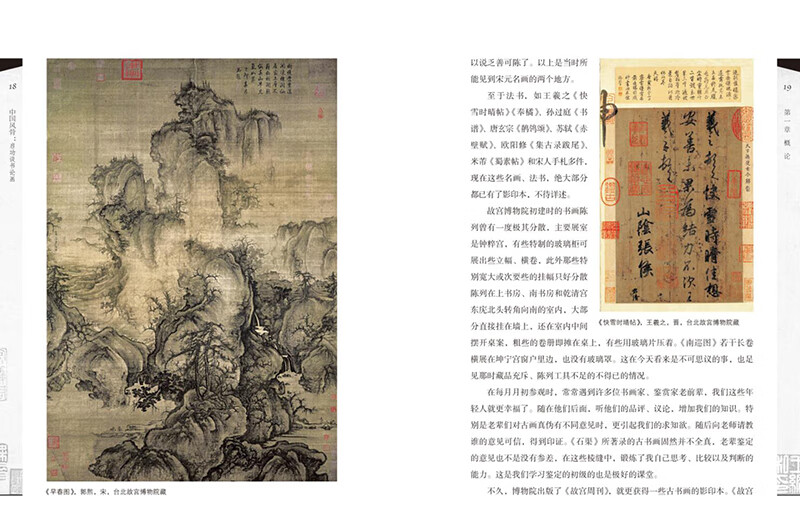 18
中国风骨:启功谈书论画
《早春图》,郭熙,宋,台北故宫博物院藏
以说乏善可陈了。以上是当时所
能见到宋元名画的两个地方。
至于法书,如王羲之《快
雪时晴帖》《奉橘》、孙过庭《书
谱》、唐玄宗《鹡鸰颂》、苏轼《赤
壁赋》、欧阳修《集古录跋尾》、
米芾《蜀素帖》和宋人手札多件,
现在这些名画、法书,绝大部分
都已有了影印本,不待详述。
故宫博物院初建时的书画陈
列曾有一度极其分散,主要展室
是钟粹宫,有些特制的玻璃柜可
展出些立幅、横卷,此外那些特
别宽大或次要些的挂幅只好分散
陈列在上书房、南书房和乾清宫
东庑北头转角向南的室内,大部
分直接挂在墙上,还在室内中间
摆开桌案,粗些的卷册即摊在桌上,有些用玻璃片压着。《南巡图》若干长卷
横展在坤宁宫窗户里边,也没有玻璃罩。这在今天看来是不可思议的事,也足
见那时藏品充斥、陈列工具不足的不得已的情况。
在每月月初参观时,常常遇到许多位书画家、鉴赏家老前辈,我们这些年
轻人就更幸福了。随在他们后面,听他们的品评、议论,增加我们的知识。特
别是老辈们对古画真伪有不同意见时,更引起我们的求知欲。随后向老师请教
谁的意见可信,得到印证。《石渠》所著录的古书画固然并不全真,老辈鉴定
的意见也不是没有参差,在这些棱缝中,锻炼了我自己思考、比较以及判断的
能力。这是我们学习鉴定的初级的也是极好的课堂。
不久,博物院出版了《故宫周刊》,就更获得一些古书画的影印本。《故宫
羲之顿首快雪时晴佳想
安善未果为结力不次王
羲之顿首
山陰張侯
《快雪时晴帖》,王羲之,晋,台北故宫博物院藏
19
第一章 概论